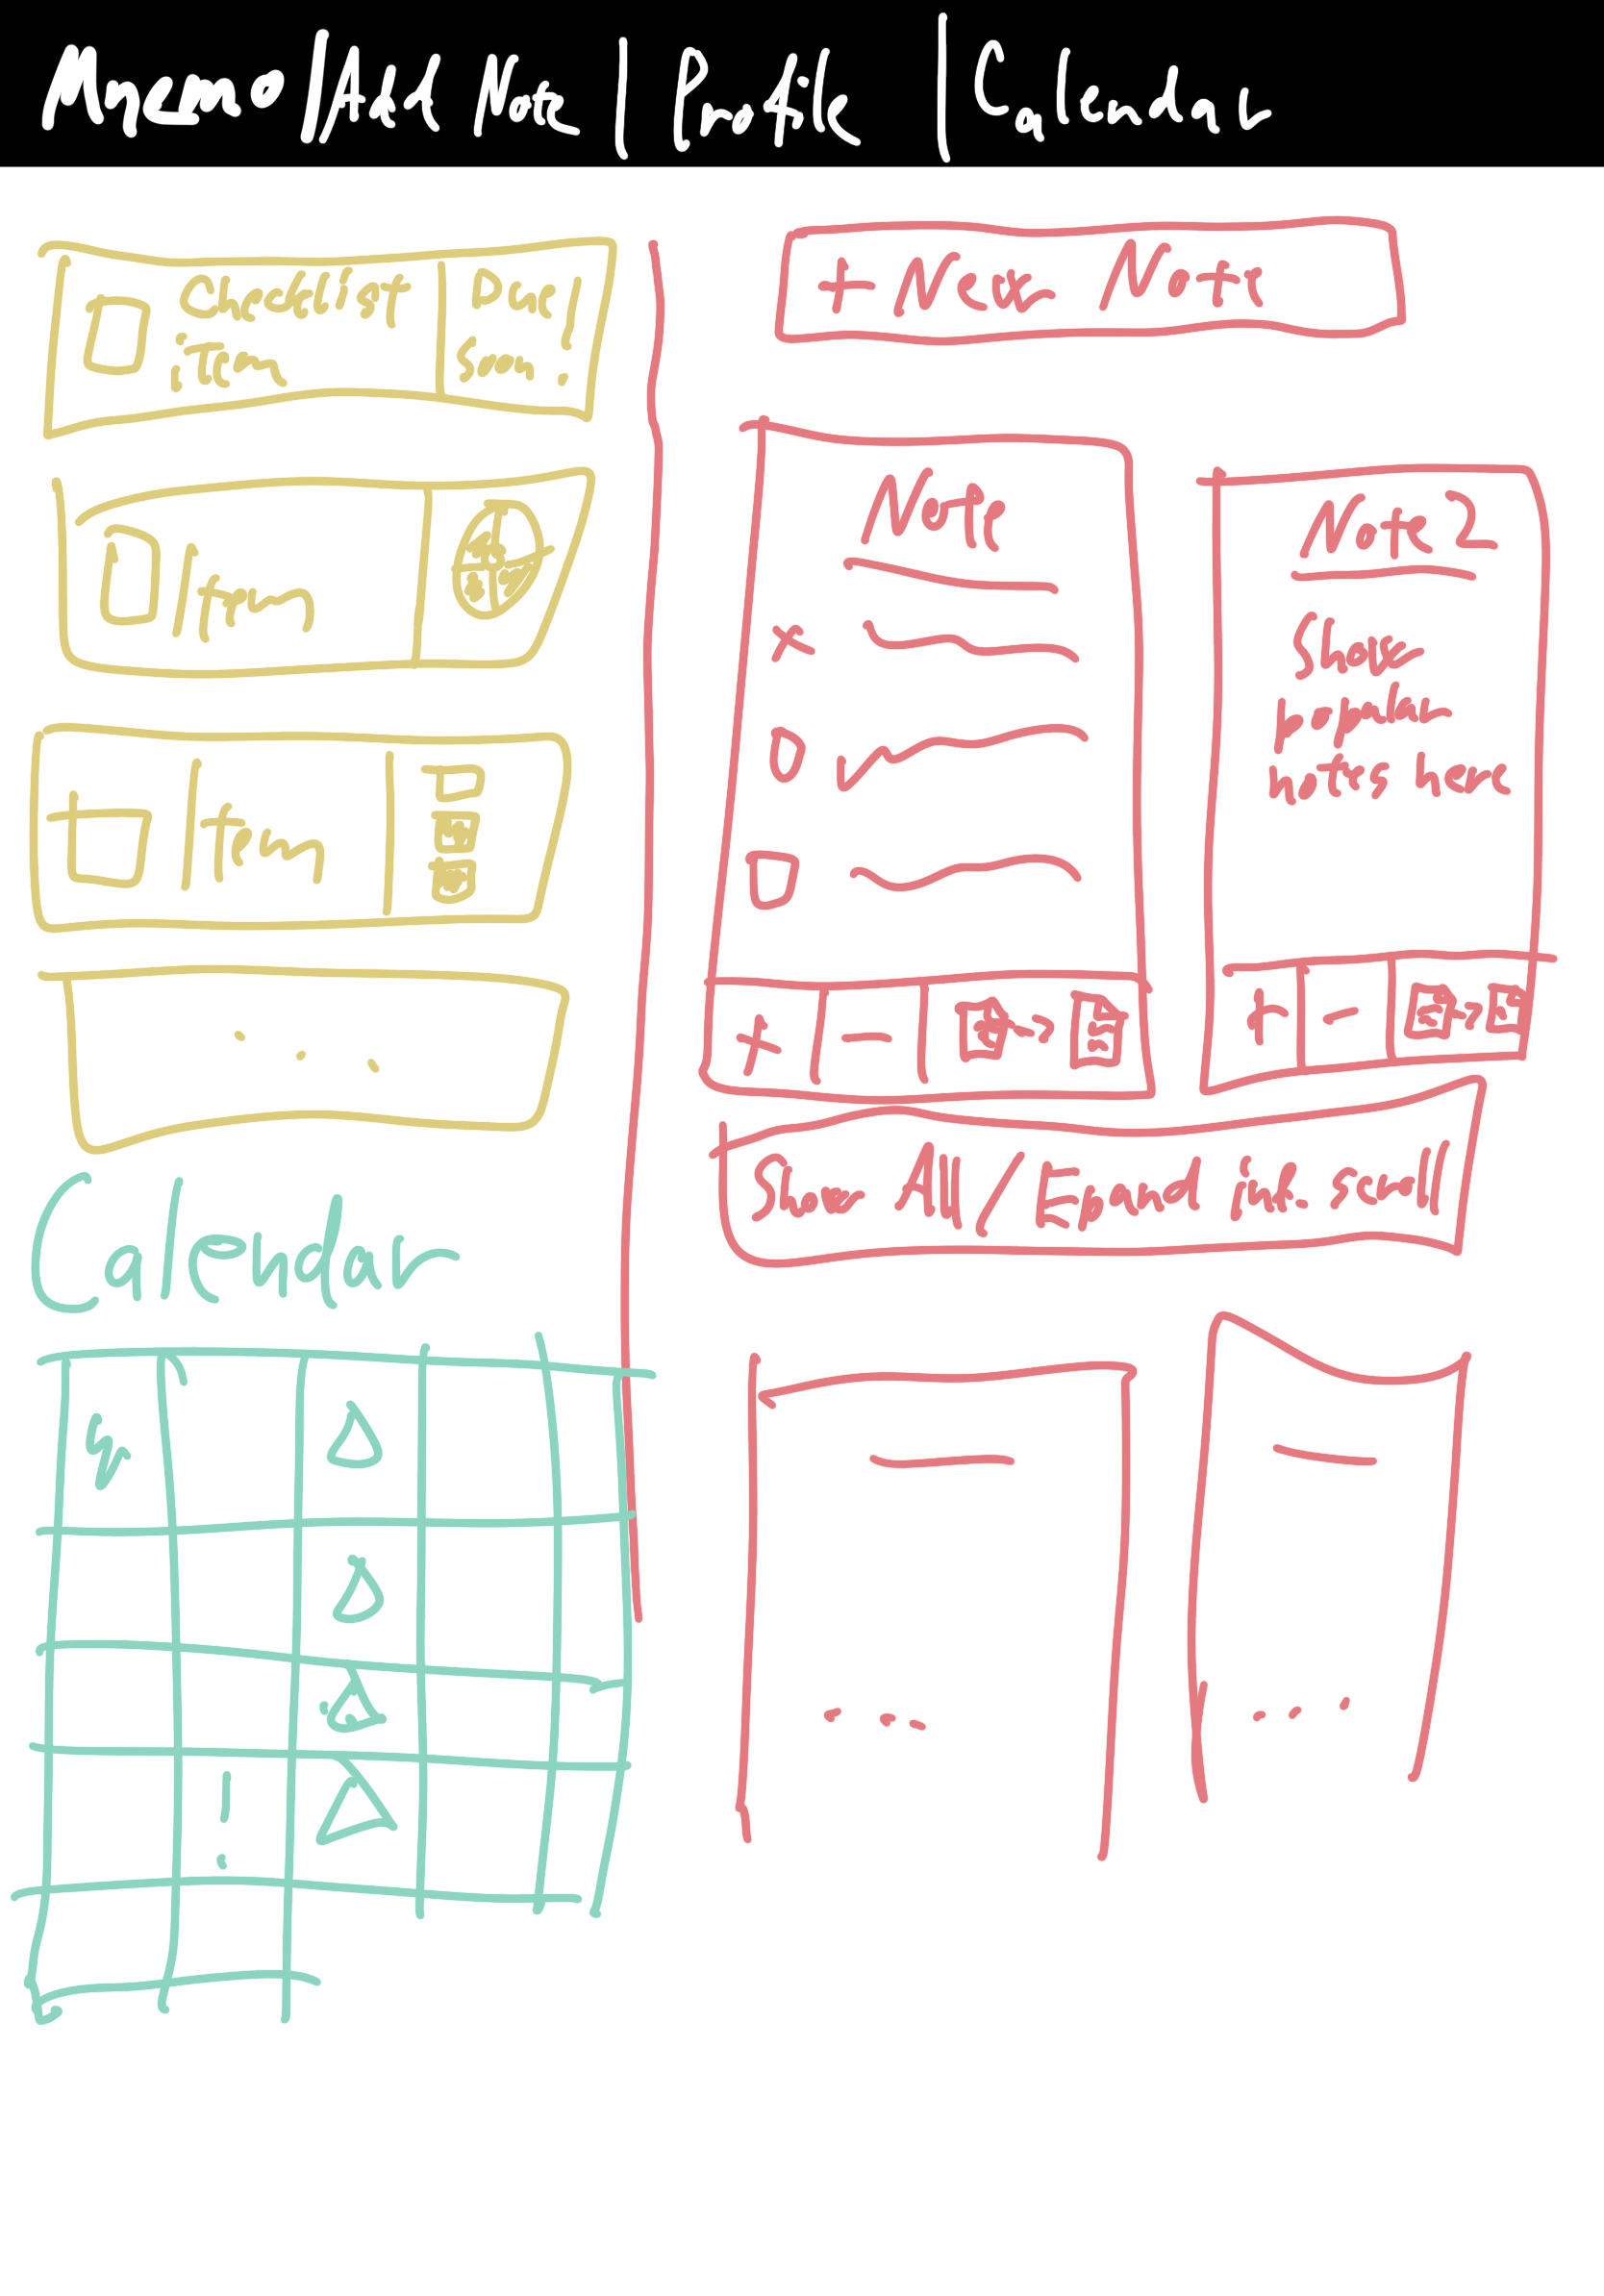 Memo / Add Note | Profile | Calendar
Checklist item
Due soon!
Item
Item
...
Calendar
!
+ New Note
Note
+ | - | ->
Note 2
Show
popular
notes here
+ | - | ->
Show All / Expand inf. scroll
...
...